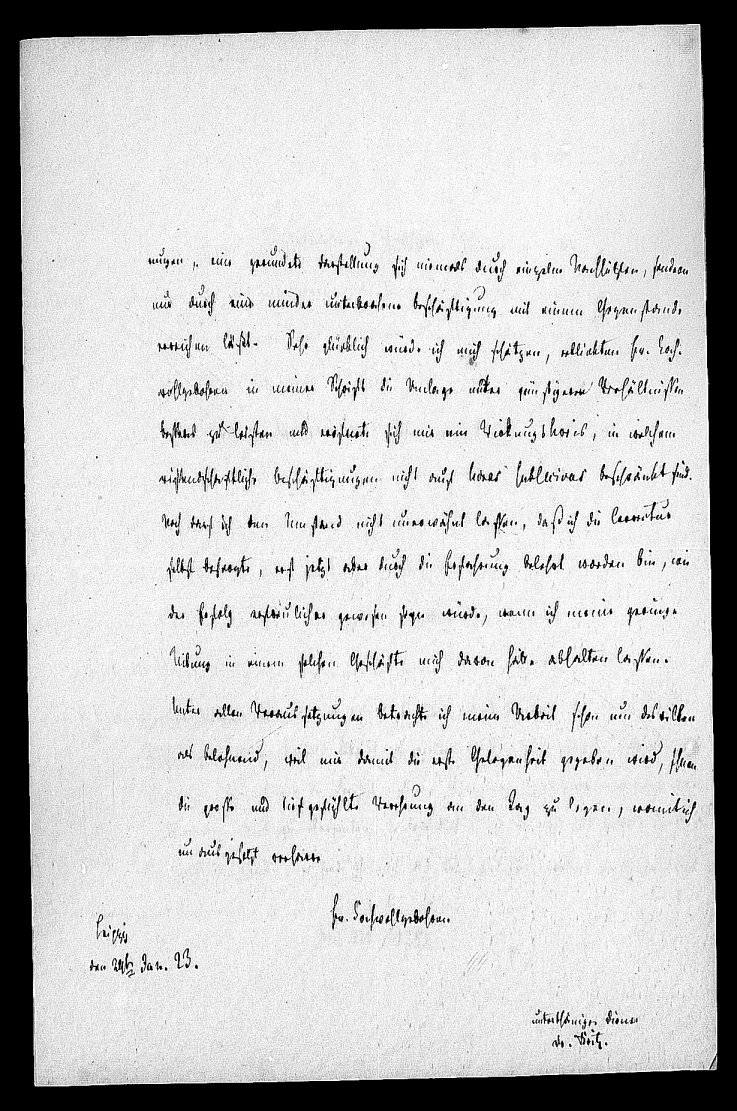 nungen, eine gerundete Darstellung sich niemals durch einzelne Nachhülfen, sondern
nur durch eine minder unterbrochene Beschäftigung mit einem Gegenstande
erreichen läßt. Sehr glücklich würde ich mich schätzen, erblickten Ew. Hoch-
wohlgebohren in meiner Schrift die Anlage unter günstigeren Verhältnissen
besseres zu leisten und eröffnete sich mir ein Wirkungskreis, in welchem
wissenschaftliche Beschäftigungen nicht auf horas subsecivas beschränkt sind.
Noch darf ich den Umstand nicht unerwähnt lassen, daß ich die Correctur
selbst besorgte, erst jetzt aber durch die Erfahrung belehrt worden bin, wie
der Erfolg erfreulicher gewesen seyn würde, wenn ich meine geringe
Uibung in einem solchen Geschäfte mich davon hätte abhalten lassen.
Unter allen Voraussetzungen betrachte ich meine Arbeit schon um deswillen
als belohnend, weil mir damit die erste Gelegenheit gegeben wird, Ihnen
die große und tief gefühlte Verehrung an den Tag zu legen, womit ich
unausgesetzt verharre
Ew. Hochwohlgebohren
Leipzig
den 29ten Jan. 23.
unterthäniger Diener
Dr.